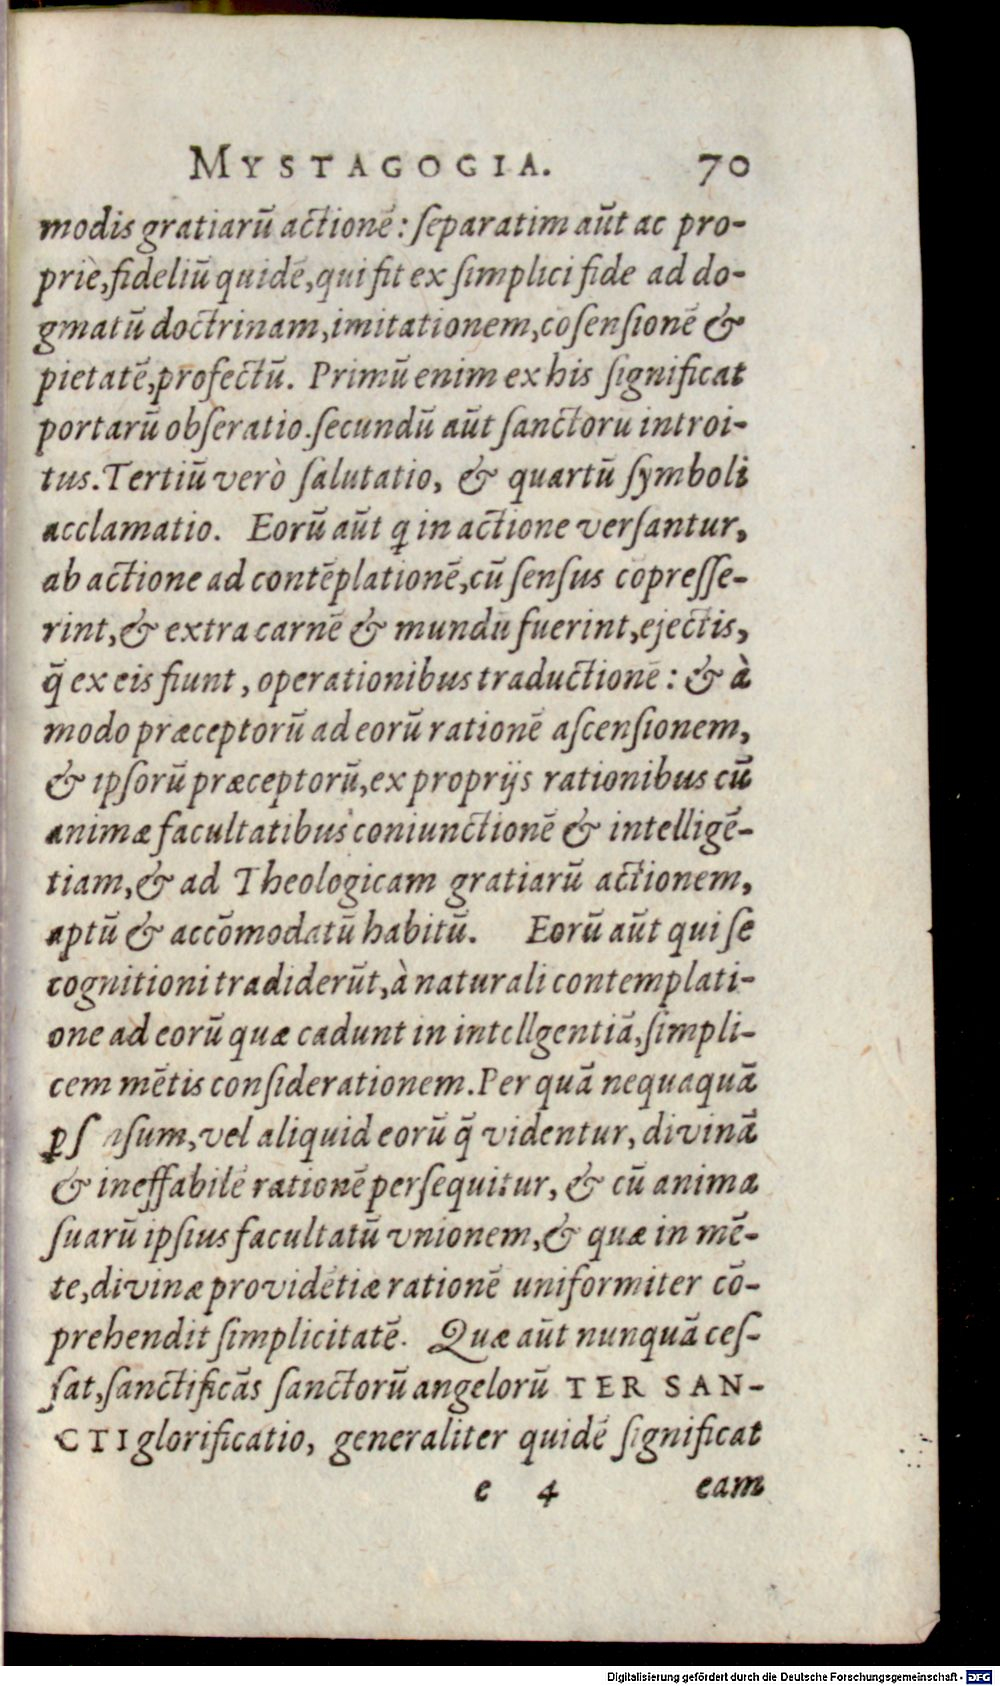 MYSTAGOGIA. 70
modis gratiarū actionē: ſeparatim aūt ac pro-
priè, fideliū quidē, qui fit ex ſimplici fide ad do-
gmatū doctrinam, imitationem, cōſenſionē &
pietatē, profectū. Primū enim ex his ſignificat
portarū obſeratio. ſecundū aūt ſanctorū introi-
tus. Tertiū verò ſalutatio, & quartū ſymboli
acclamatio. Eorū aūt q in actione verſantur,
ab actione ad contēplationē, cū ſenſus cōpreſſe-
rint, & extra carnē & mundū fuerint, ejectis,
q̄ ex eis fiunt, operationibus traductionē: & à
modo præceptorū ad eorū rationē aſcenſionem,
& ipſorū præceptorū, ex proprijs rationibus cū
animæ facultatibus coniunctionē & intelligē-
tiam, & ad Theologicam gratiarū actionem,
aptū & accōmodatū habitū. Eorū aūt qui ſe
cognitioni tradiderūt, à naturali contemplati-
one ad eorū quæ cadunt in intellgentiā, ſimpli-
cem mētis conſiderationem. Per quā nequaquā
ꝑ vel aliquid eorū q̄ videntur, divinā
& ineffabilē rationē perſequitur, & cū anima
ſuarū ipſius facultatū vnionem, & quæ in mē-
te, divinæ providētiæ rationē uniformiter cō-
prehendit ſimplicitatē. Quæ aūt nunquā ceſ-
ſat, ſanctificās ſanctorū angelorū TER SAN-
CTI glorificatio, generaliter quidē ſignificat
e 4 eam
Digitalisierung gefördert durch die Deutsche Forschungsgemeinschaft - DFG